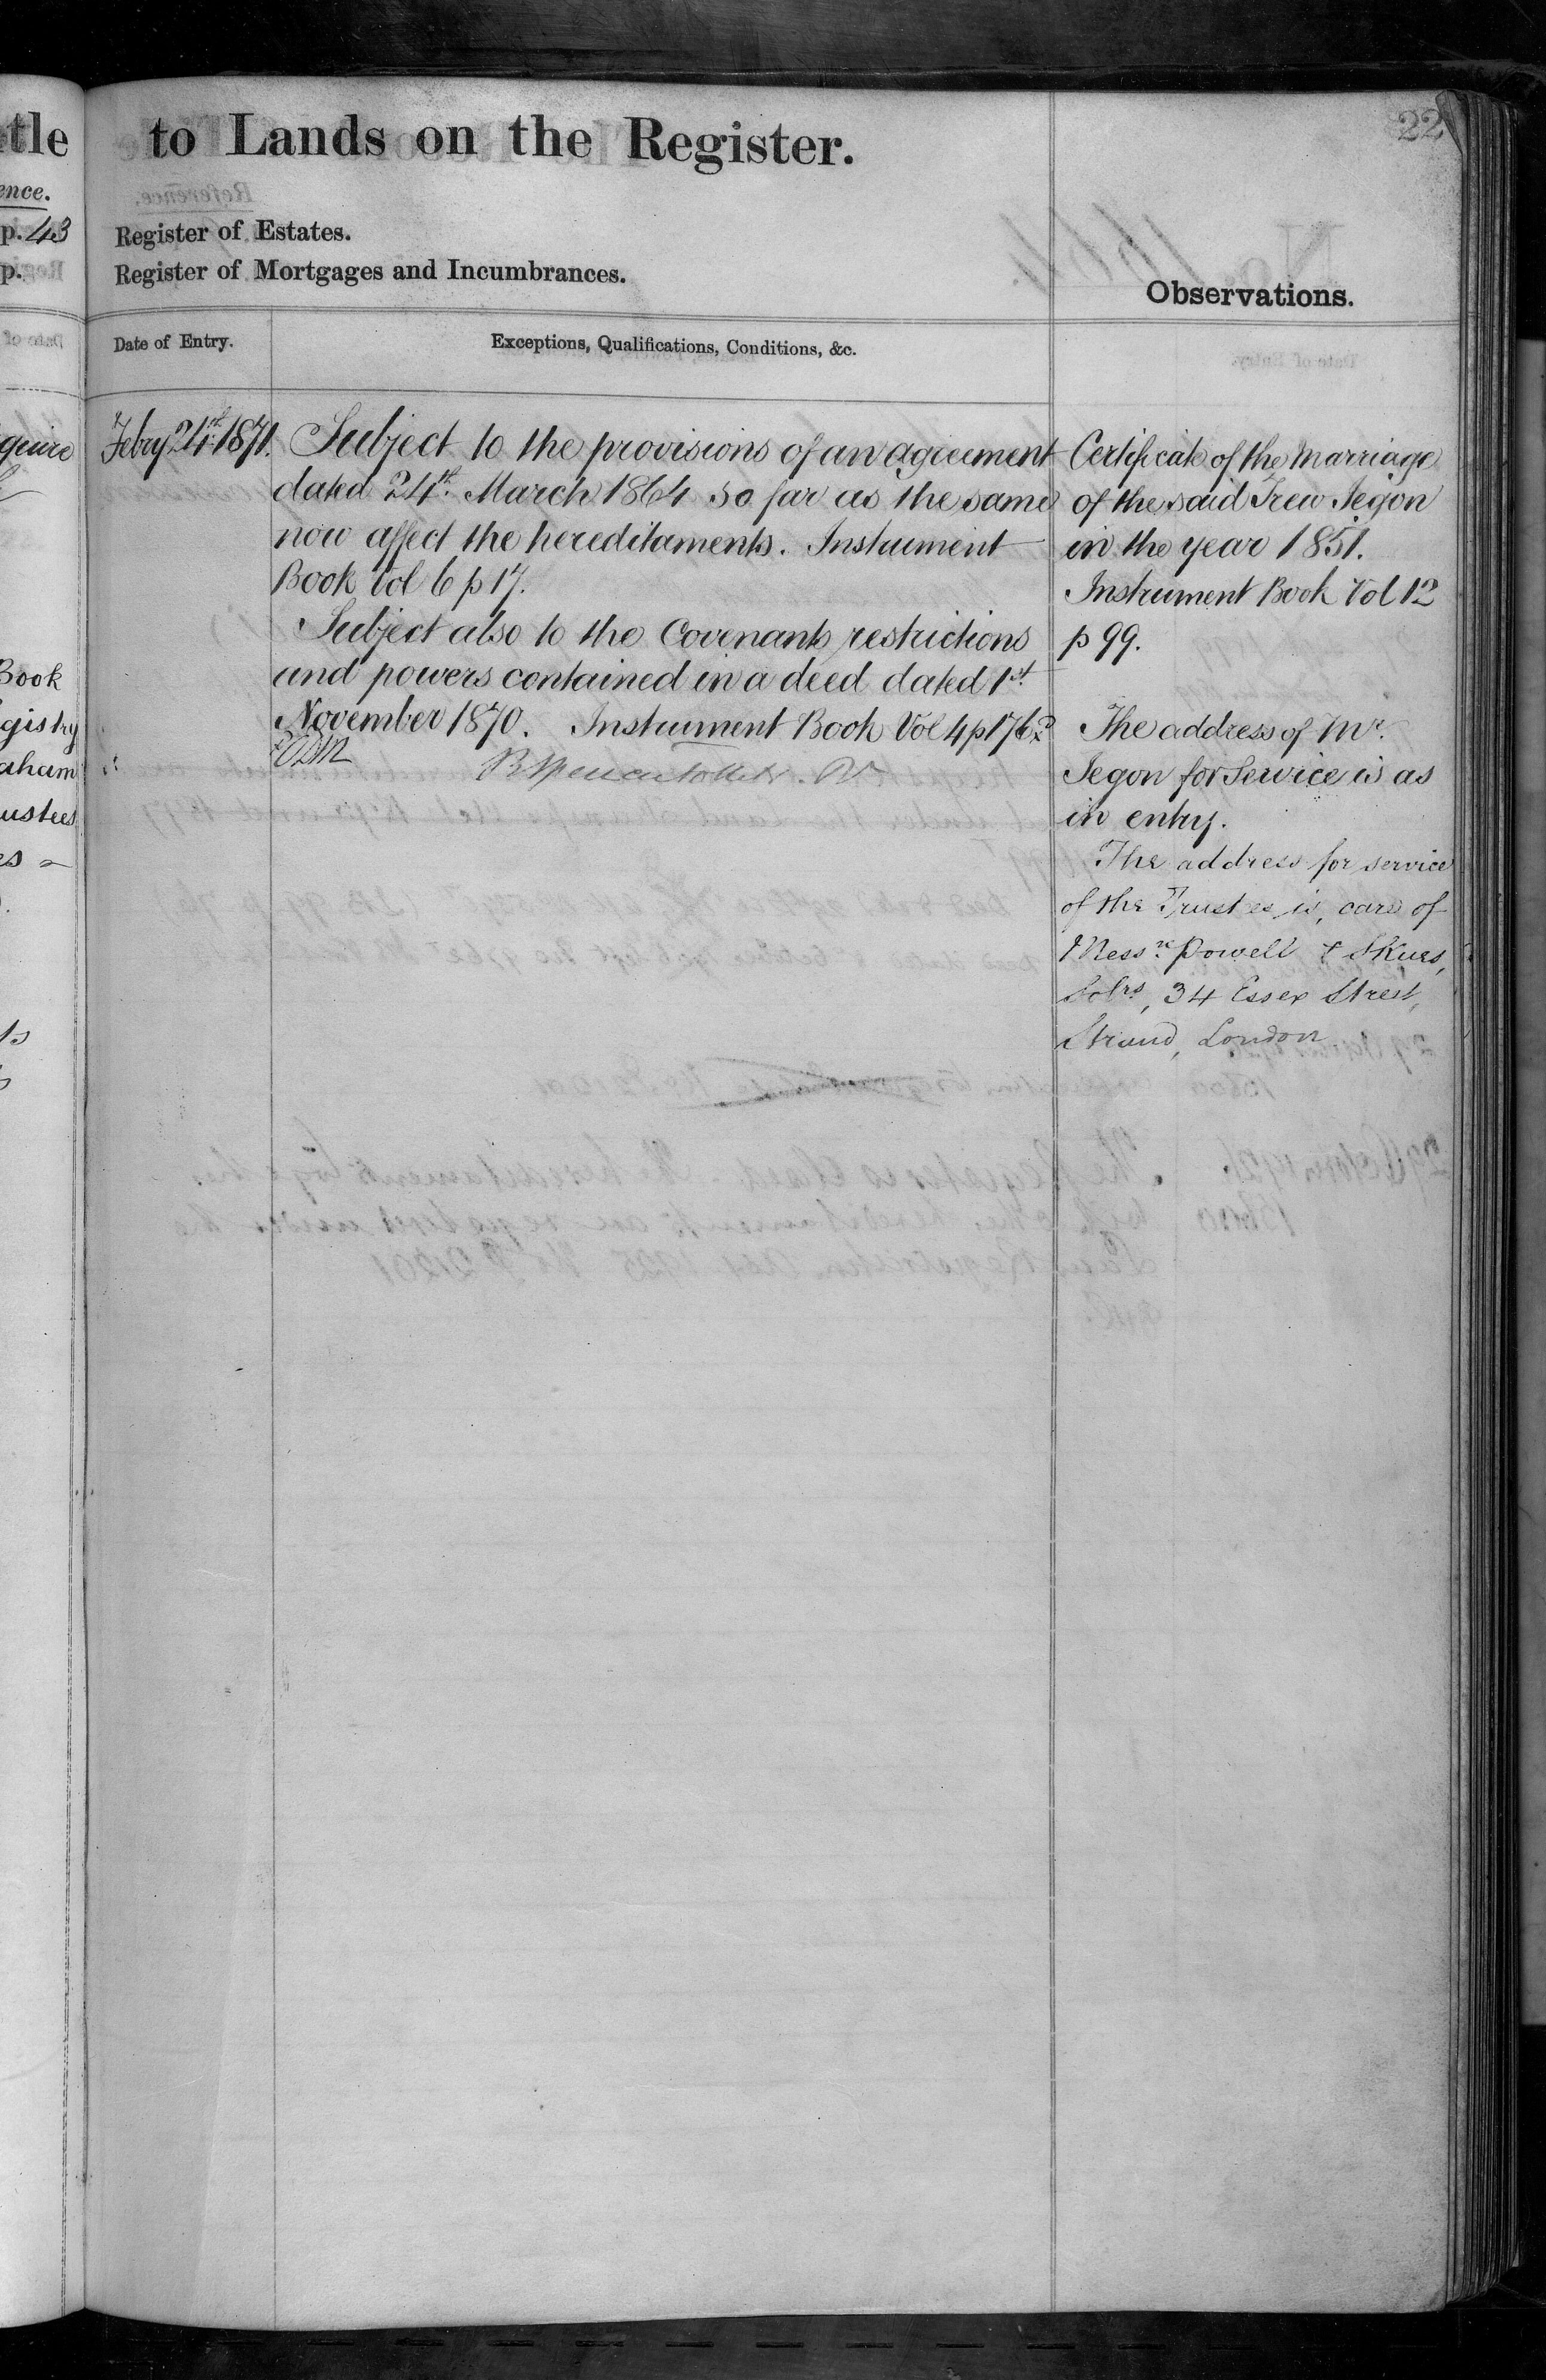 tle
ence.
p. 43
p.
quire
Book
gistry
aham
ustees
to Lands on the Register.
22
Register of Estates.
Register of Mortgages and Incumbrances.
Observations.
Date of Entry.
Exceptions, Qualifications, Conditions, &c.
Febry 21st 1871.
Subject to the provisions of an agreement
dated 24th March 1864 so far as the same
now affect the hereditaments. Instrument
Book Vol 6 p 17.
Subject also to the Covenants restrictions
and powers contained in a deed dated 1st
November 1870. Instrument Book Vol 4 p 176
Certificate of the Marriage
of the said Trew Jegon
in the year 1851.
Instrument Book Vol 12
p 99.
The address of Mr.
Jegon for Service is as
in entry.
The address for service
of the Trustees is, care of
Messrs Powell & Skues,
Solrs, 34 Essex Street,
Strand, London